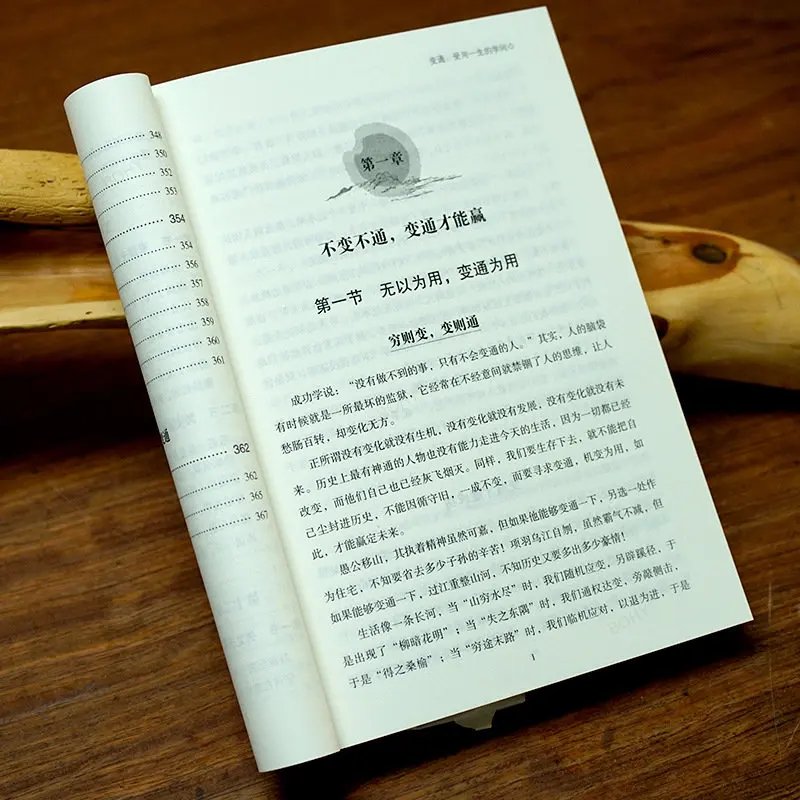 348
350
352
353
354
354
356
357
358
359
360
361
通
362
362
365
367
变通:受用一生的学问
第一章
不变不通,变通才能赢
第一节 无以为用,变通为用
穷则变,变则通
成功学说:“没有做不到的事,只有不会变通的人。”其实,人的脑袋
有时候就是一所最坏的监狱,它经常在不经意间就禁锢了人的思维,让人
愁肠百转,却变化无方。
正所谓没有变化就没有生机,没有变化就没有发展,没有变化就没有未
来。历史上最有神通的人物也没有能力走进今天的生活,因为一切都已经
改变,而他们自己也已经灰飞烟灭。同样,我们要生存下去,就不能把自
己尘封进历史,不能因循守旧,一成不变,而要寻求变通,机变为用,如
此,才能赢定未来。
愚公移山,其执着精神虽然可嘉,但如果他能够变通一下,另选一处作
为住宅,不知要省去多少子孙的辛苦!项羽乌江自刎,虽然霸气不减,但
如果能够变通一下,过江重整山河,不知历史又要多出多少豪情!
生活像一条长河,当“山穷水尽”时,我们随机应变,另辟蹊径,于
是出现了“柳暗花明”;当“失之东隅”时,我们通权达变,旁敲侧击,
于是“得之桑榆”;当“穷途末路”时,我们临机应对,以退为进,于是
1